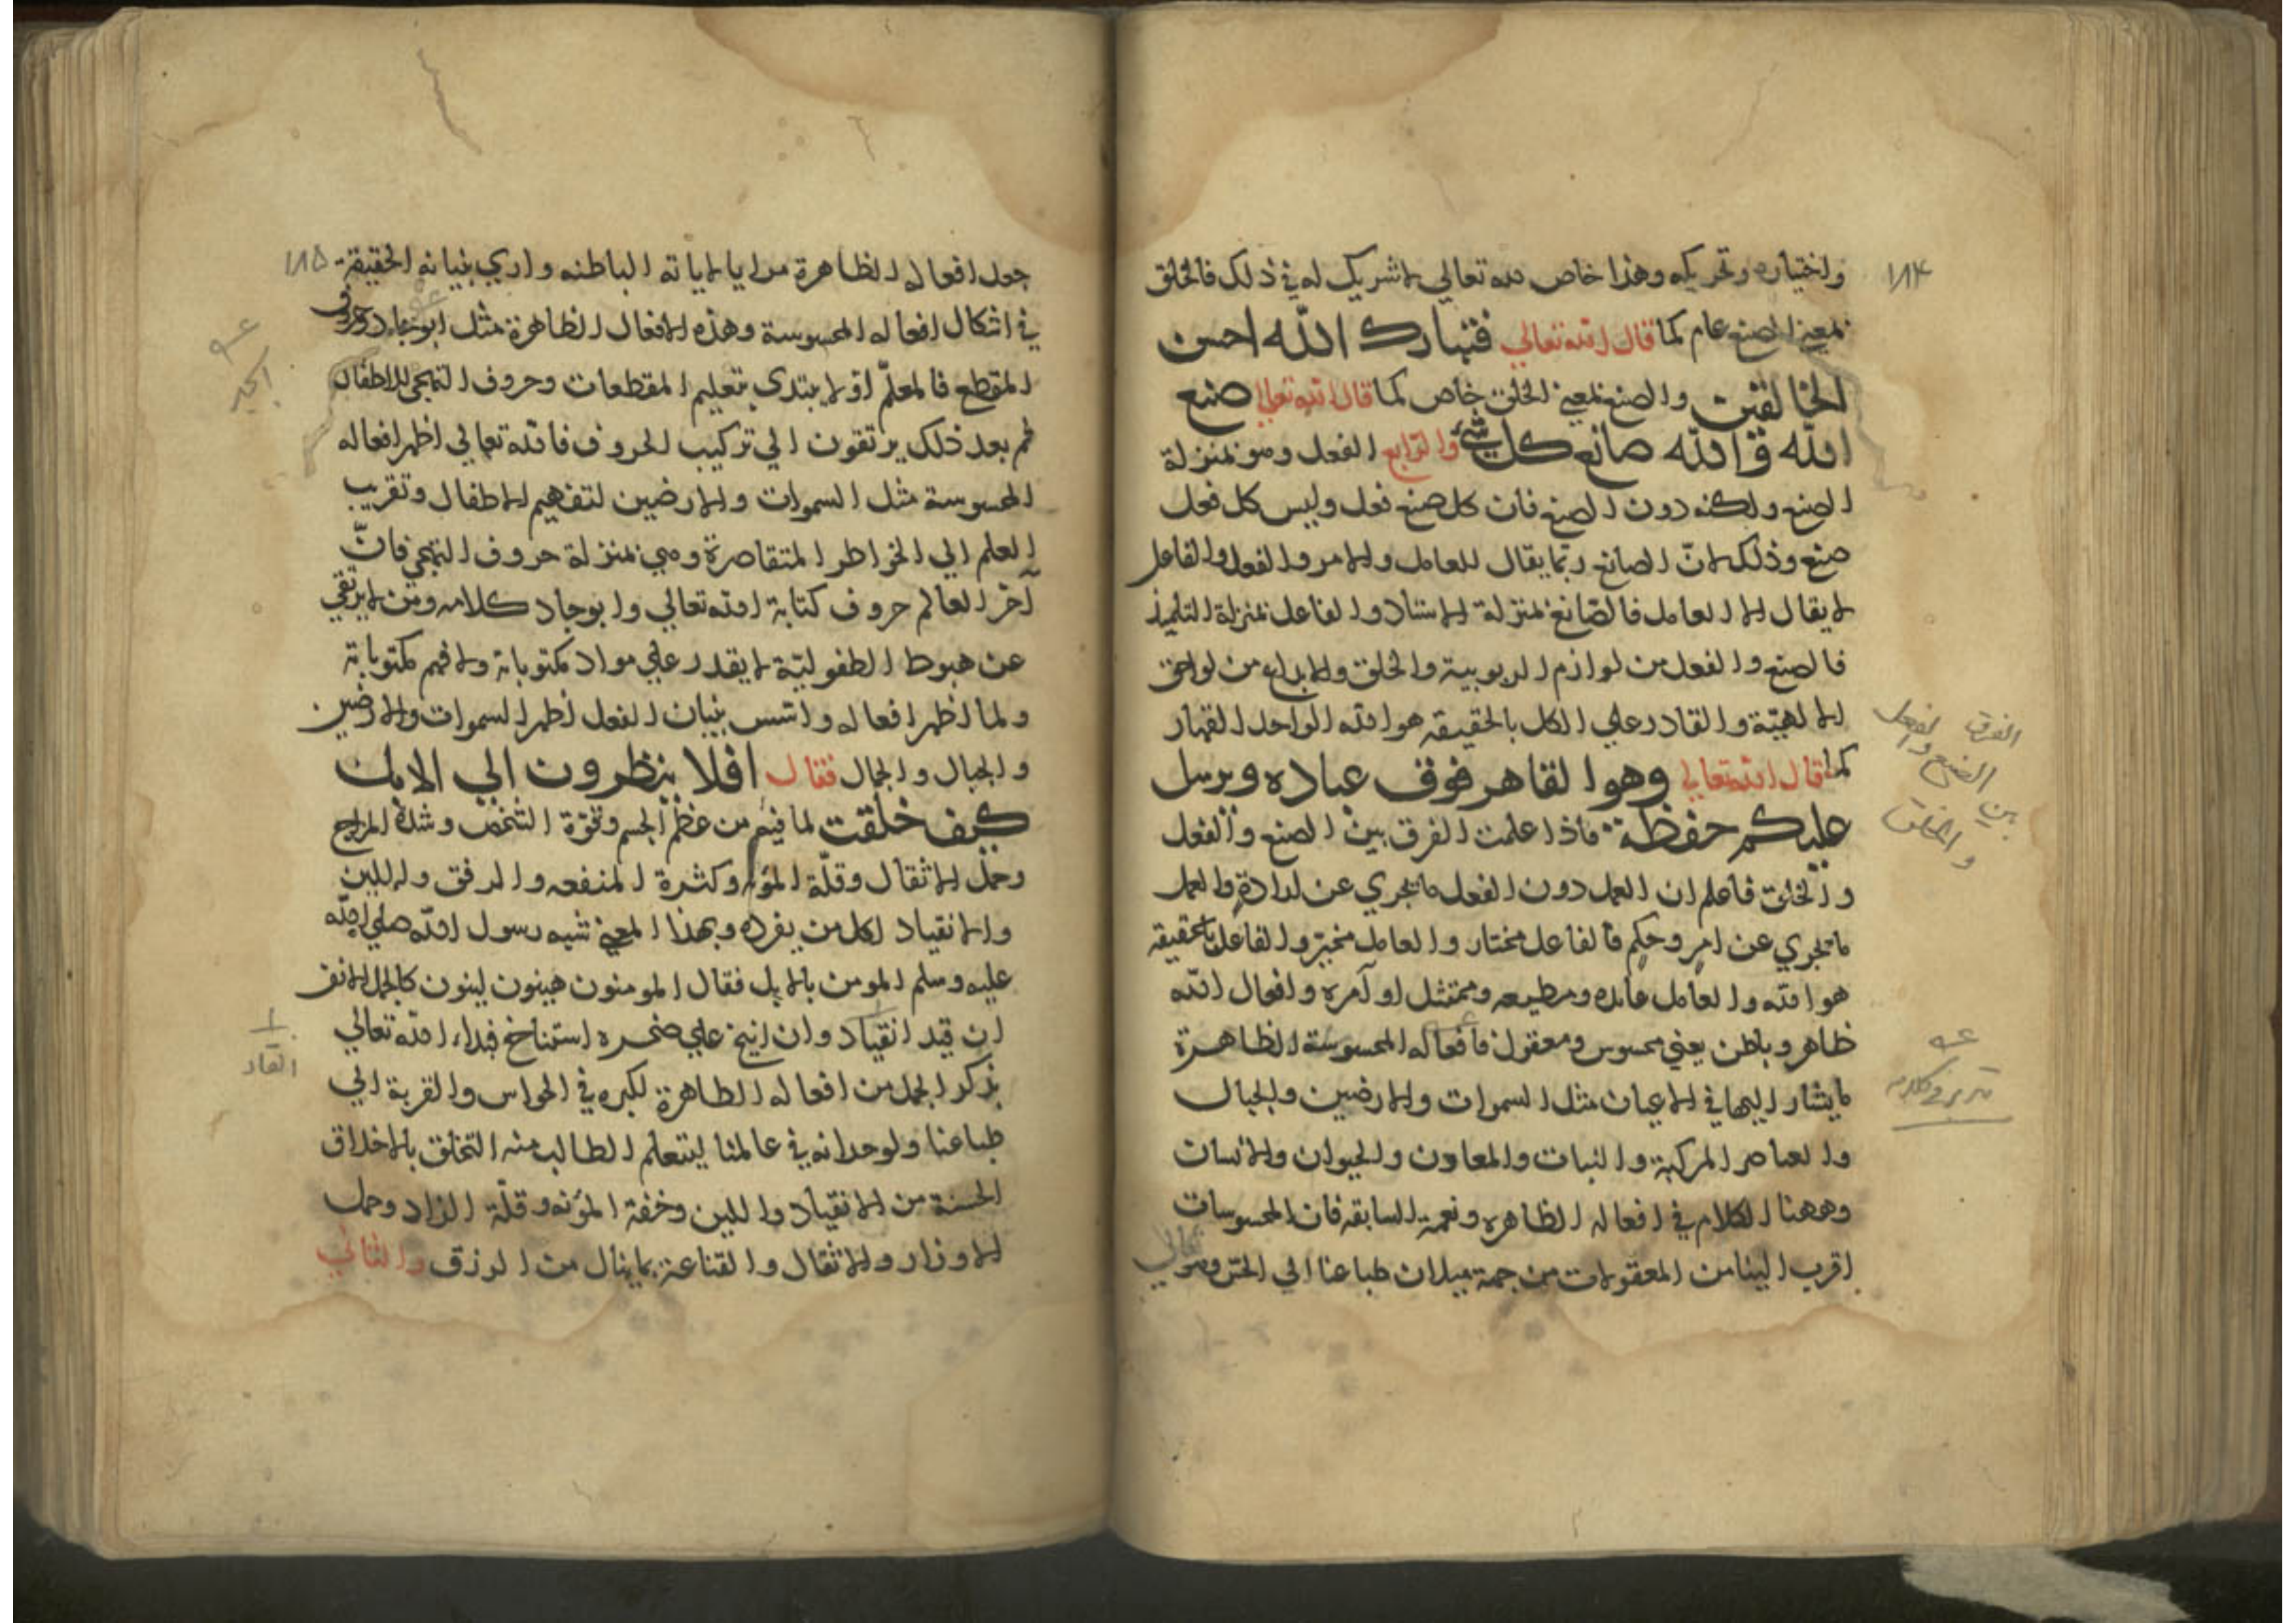 ١٨٤
واختياره وتحريكه وهذا خاص لله تعالي لا شريك له في ذلك فالخلق
بمعني الصنع عام كما قال الله تعالي فتبارك الله احسن
الخالقين والصنع بمعني الخلق خاص كما قال الله تعالي صنع
الله والله صانع كل شيء والرابع الفعل وهو بمنزلة
الصنع ولكنه دون الصنع فان كل صنع فعل وليس كل فعل
صنع وذلك لانّ الصانع ربما يقال للعامل والامر والفعل والفاعل
لا يقال الا العامل فالصّانع بمنزلة الاستاد والفاعل بمنزلة التلميذ
فالصنع والفعل من لوازم الربوبية والخلق والابداع من لواحق
الالهيّة والقادر علي الكل بالحقيقه هو الله الواحد القهار
كما قال الله تعالي وهو القاهر فوق عباده ويرسل
عليكم حفظة فاذا علمت الفرق بين الصنع والفعل
والخلق فاعلم ان العمل دون الفعل ما يجري عن ارادة والعمل
ما يجري عن امر وحكم فالفاعل مختار والعامل مخبر والفاعل بالحقيقه
هو الله والعامل عابده ومطيعه وممتثل اوآمره وافعال الله
ظاهر وباطن يعني محسوس ومعقول فافعاله المحسوسة الظاهرة
ما يشار اليها في الاعيان مثل السموات والارضين والجبال
والعناصر المركبة والنبات والمعادن والحيوان والانسان
وههنا الكلام في افعاله الظاهره ونعمة السابقه فان المحسوسات
اقرب الينا من المعقولات من جهة ميلان طباعنا الي الحسّ وهو تعالي
الفرق
بين الصنع والفعل
والخلق
١٨٥
جعل افعاله الظاهرة مرايا لاياته الباطنه واري بنيانه الحقيقة
في اشكال افعاله المحسوسة وهذه الافعال الظاهرة مثل ابوجاد وحروف
المقطع فالمعلّم اوّلا يبتدي بتعليم المقطعات وحروف التهجي للاطفال
ثم بعد ذلك يرتقون الي تركيب الحروف فالله تعالي اظهر افعاله
المحسوسة مثل السموات والارضين لتفهيم الاطفال وتقريب
العلم الي الخواطر المتقاصرة وهي بمنزلة حروف التهجي فانّ
آخر العالم حروف كتابة الله تعالي وابوجاد كلامه ومن لا يرتقي
عن هبوط الطفوليّة لا يقدر علي مواد مكتوباته ولا فهم مكتوباته
ولما اظهر افعاله واسّس بنيان الفعل اظهر السموات والارضين
والجبال والجمال فقال افلا ينظرون الي الابل
كيف خلقت لما فيهم من عظم الجسم وقوّة الشخص وشدة المزاج
وحمل الاثقال وقلّة المؤنه وكثرة المنفعه والرفق واللين
والانقياد لكل من يفرده وبهذا المعني شبه رسول الله صلي الله
عليه وسلم المومن بالابل فقال المومنون هينون لينون كالجمل الانف
ان قيد انقياد وان انيخ علي صخره استناخ فبداء الله تعالي
بذكر الجمل من افعاله الظاهرة لكبره في الحواس والقربة الي
طباعنا ولوحدانه في عالمنا ليتعلم الطالب منه التخلق بالاخلاق
الحسنة من الانقياد واللين وخفة المؤنه وقلّة الزاد وحمل
الاوزار والاثقال والقناعة بما ينال من الرزق والثاني
ابجد
انقاد